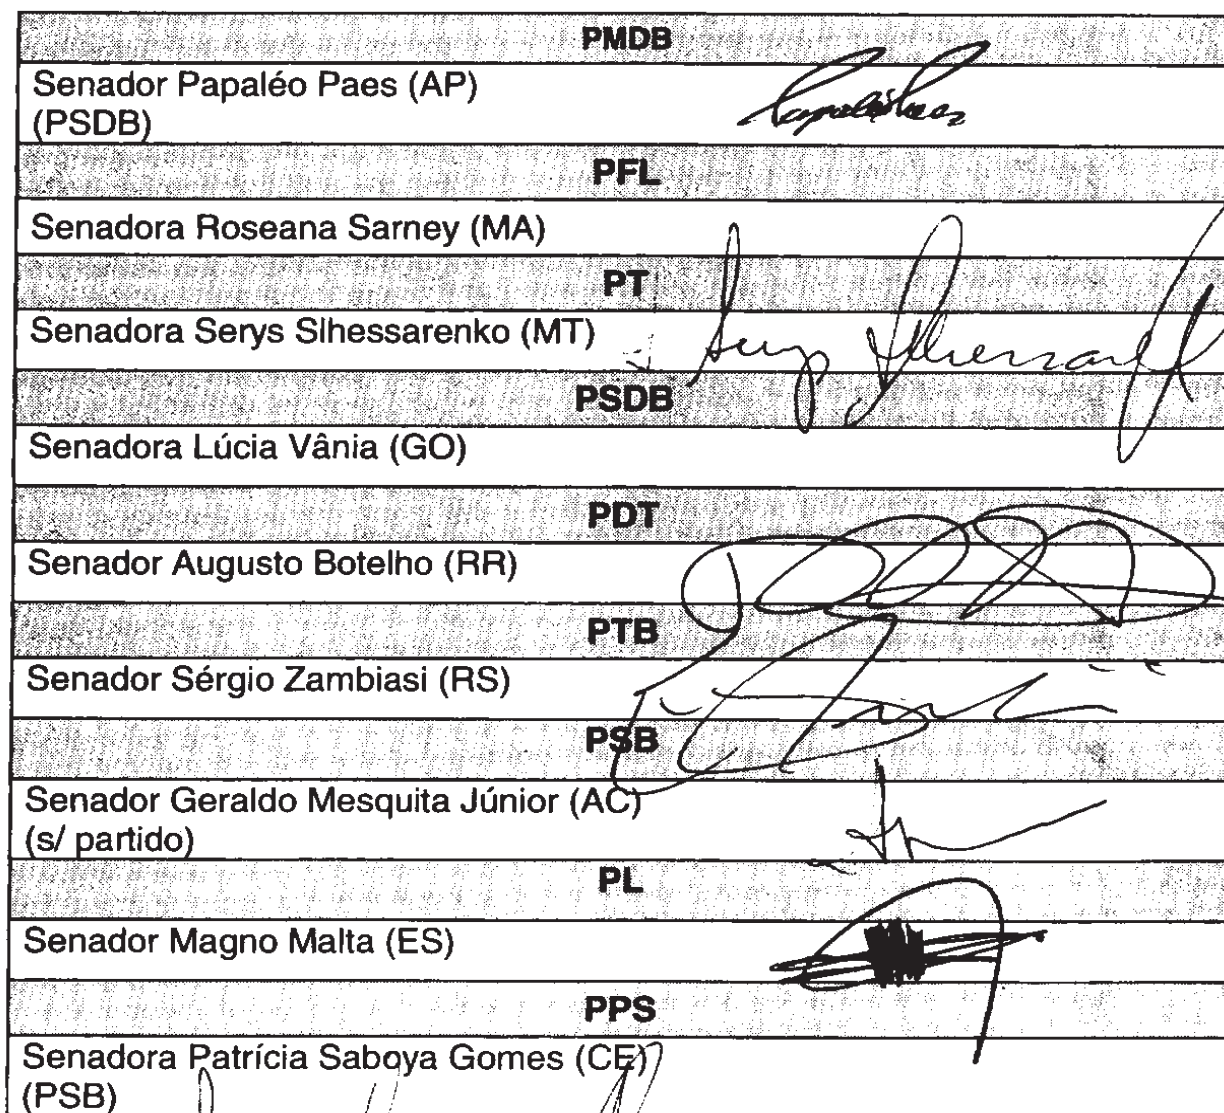 PMDB
Senador Papaléo Paes (AP)
(PSDB)
PFL
Senadora Roseana Sarney (MA)
PT
Senadora Serys Slhessarenko (MT)
PSDB
Senadora Lúcia Vânia (GO)
PDT
Senador Augusto Botelho (RR)
PTB
Senador Sérgio Zambiasi (RS)
PSB
Senador Geraldo Mesquita Júnior (AC)
(s/ partido)
PL
Senador Magno Malta (ES)
PPS
Senadora Patrícia Saboya Gomes (CE)
(PSB)